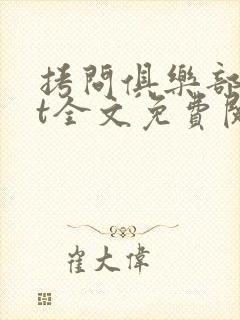 拷問俱樂部
t全文免費閱
崔大偉